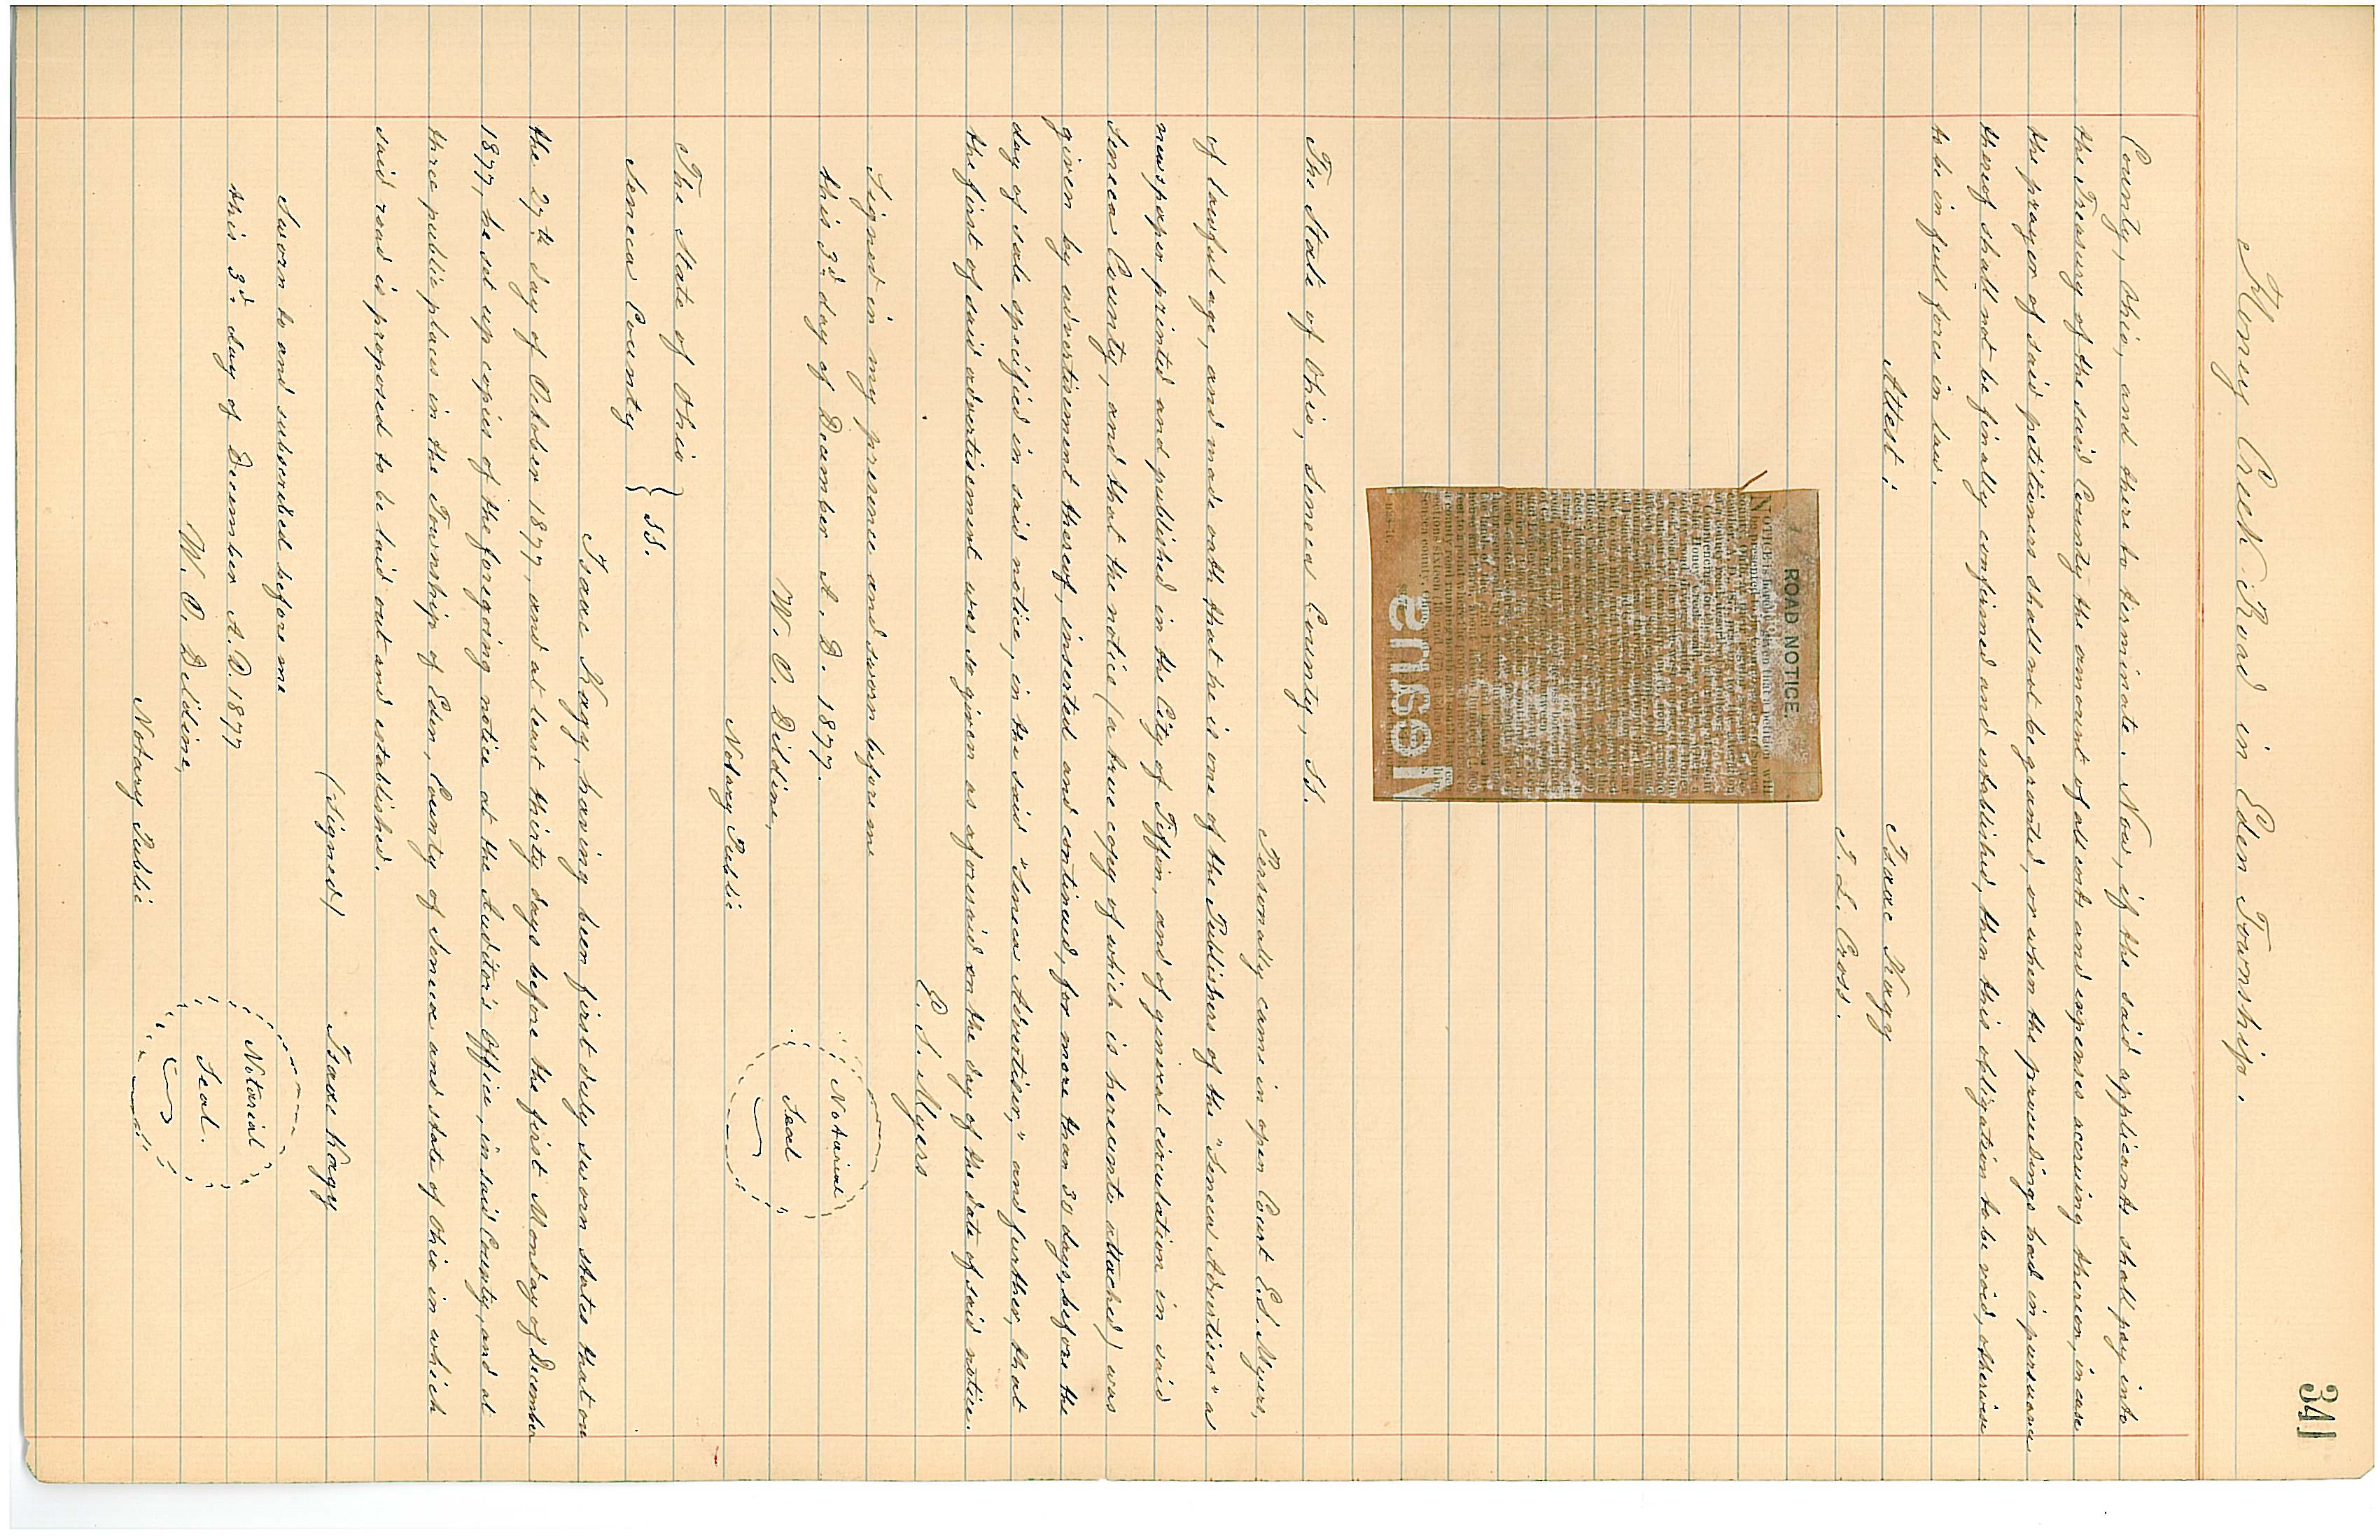 341
Honey Creek Road in Eden Township.
County, Ohio, and there to terminate. Now, if the said applicants shall pay into
the Treasury of the said County the amount of all costs and expenses accruing thereon, in case
the prayer of said petitioners shall not be granted, or when the proceedings had in pursuance
thereof shall not be finally confirmed and established, then this obligation to be void, otherwise
to be in full force in law.
Attest: Isaac Kagy
J. L. Cross.
ROAD NOTICE.
NOTICE is hereby given that a petition will
The State of Ohio, Seneca County, SS.
Personally came in open Court E. S. Myers,
of lawful age, and made oath that he is one of the Publishers of the "Seneca Advertiser" a
newspaper printed and published in the City of Tiffin, and of general circulation in said
Seneca County, and that the notice (a true copy of which is hereunto attached) was
given by advertisement thereof, inserted and continued, for more than 30 days, before the
day of sale specified in said notice, in the said "Seneca Advertiser," and further, that
the first of said advertisement was so given as aforesaid on the day of the date of said notice.
E. S. Myers
Signed in my presence and sworn before me
this 3d day of December A. D. 1877.
W. C. Dildine,
Notary Public
Notarial
Seal
The State of Ohio
Seneca County } SS.
Isaac Kagy, having been first duly sworn states that on
the 27th day of October 1877, and at least thirty days before the first Monday of December
1877, he set up copies of the foregoing notice at the Auditor's Office, in said County, and at
three public places in the Township of Eden, County of Seneca and state of Ohio in which
said road is proposed to be laid out and established.
(Signed) Isaac Kagy
Sworn to and subscribed before me
this 3d day of December A.D. 1877
W. C. Dildine,
Notary Public
Notarial
Seal.